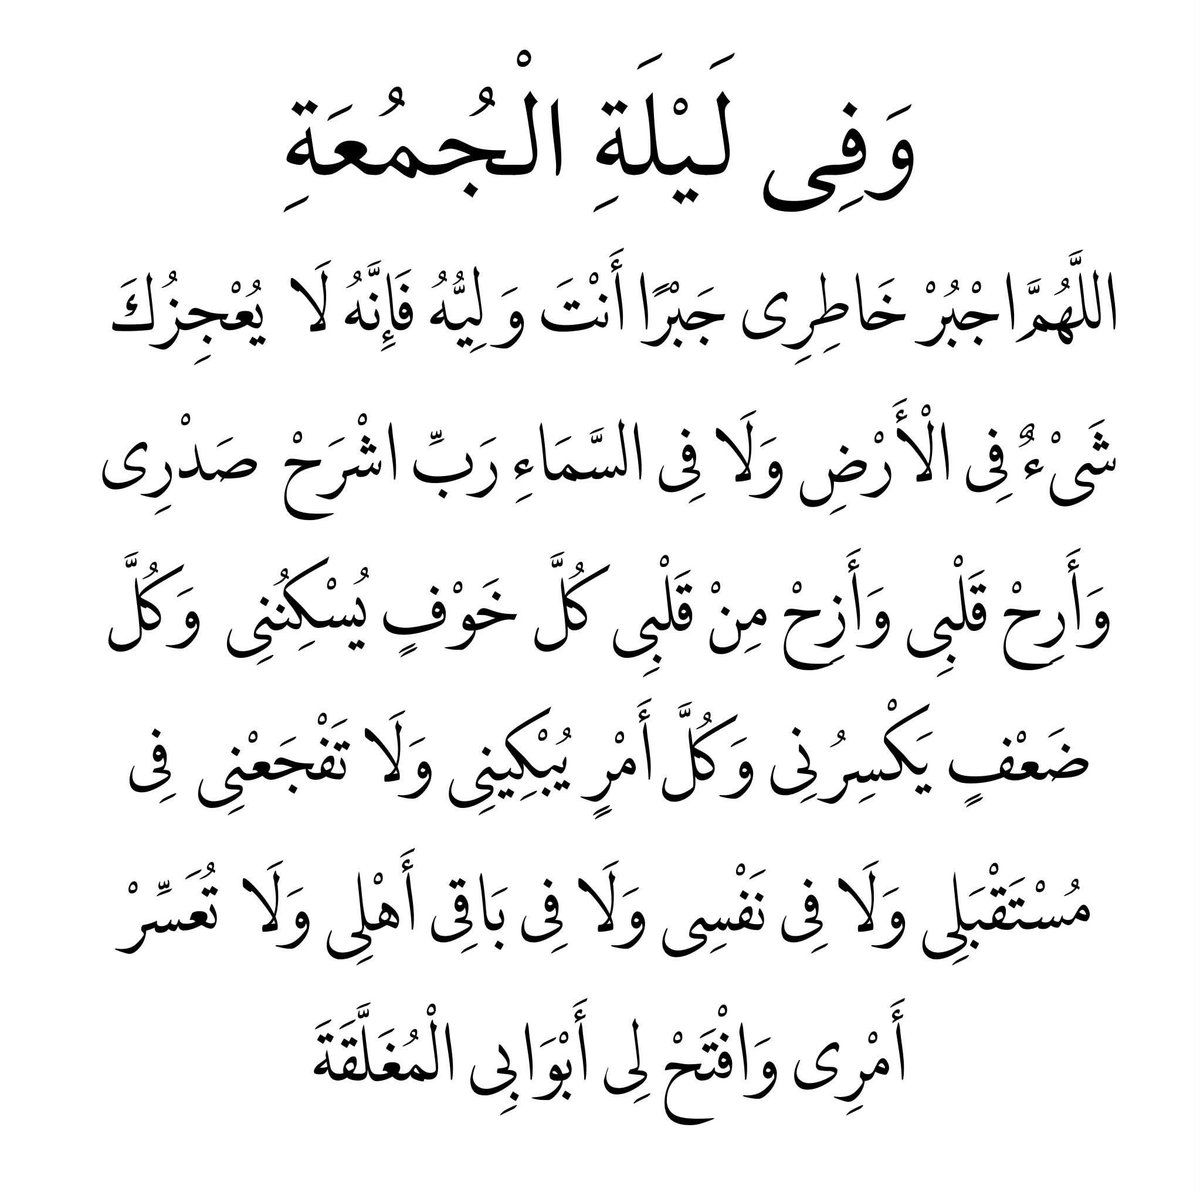 وَفِى لَيْلَةِ الْجُمُعَةِ
اللَّهُمَّ اجْبُرْ خَاطِرِى جَبْرًا أَنْتَ وَلِيُّهُ فَإِنَّهُ لَا يُعْجِزُكَ
شَىْءٌ فِى الْأَرْضِ وَلَا فِى السَّمَاءِ رَبِّ اشْرَحْ صَدْرِى
وَأَرِحْ قَلْبِى وَأَزِحْ مِنْ قَلْبِى كُلَّ خَوْفٍ يُسْكِنُنِى وَكُلَّ
ضَعْفٍ يَكْسِرُنِى وَكُلَّ أَمْرٍ يُبْكِينِى وَلَا تَفْجَعْنِى فِى
مُسْتَقْبَلِى وَلَا فِى نَفْسِى وَلَا فِى بَاقِى أَهْلِى وَلَا تُعَسِّرْ
أَمْرِى وَافْتَحْ لِى أَبْوَابِى الْمُغَلَّقَةَ